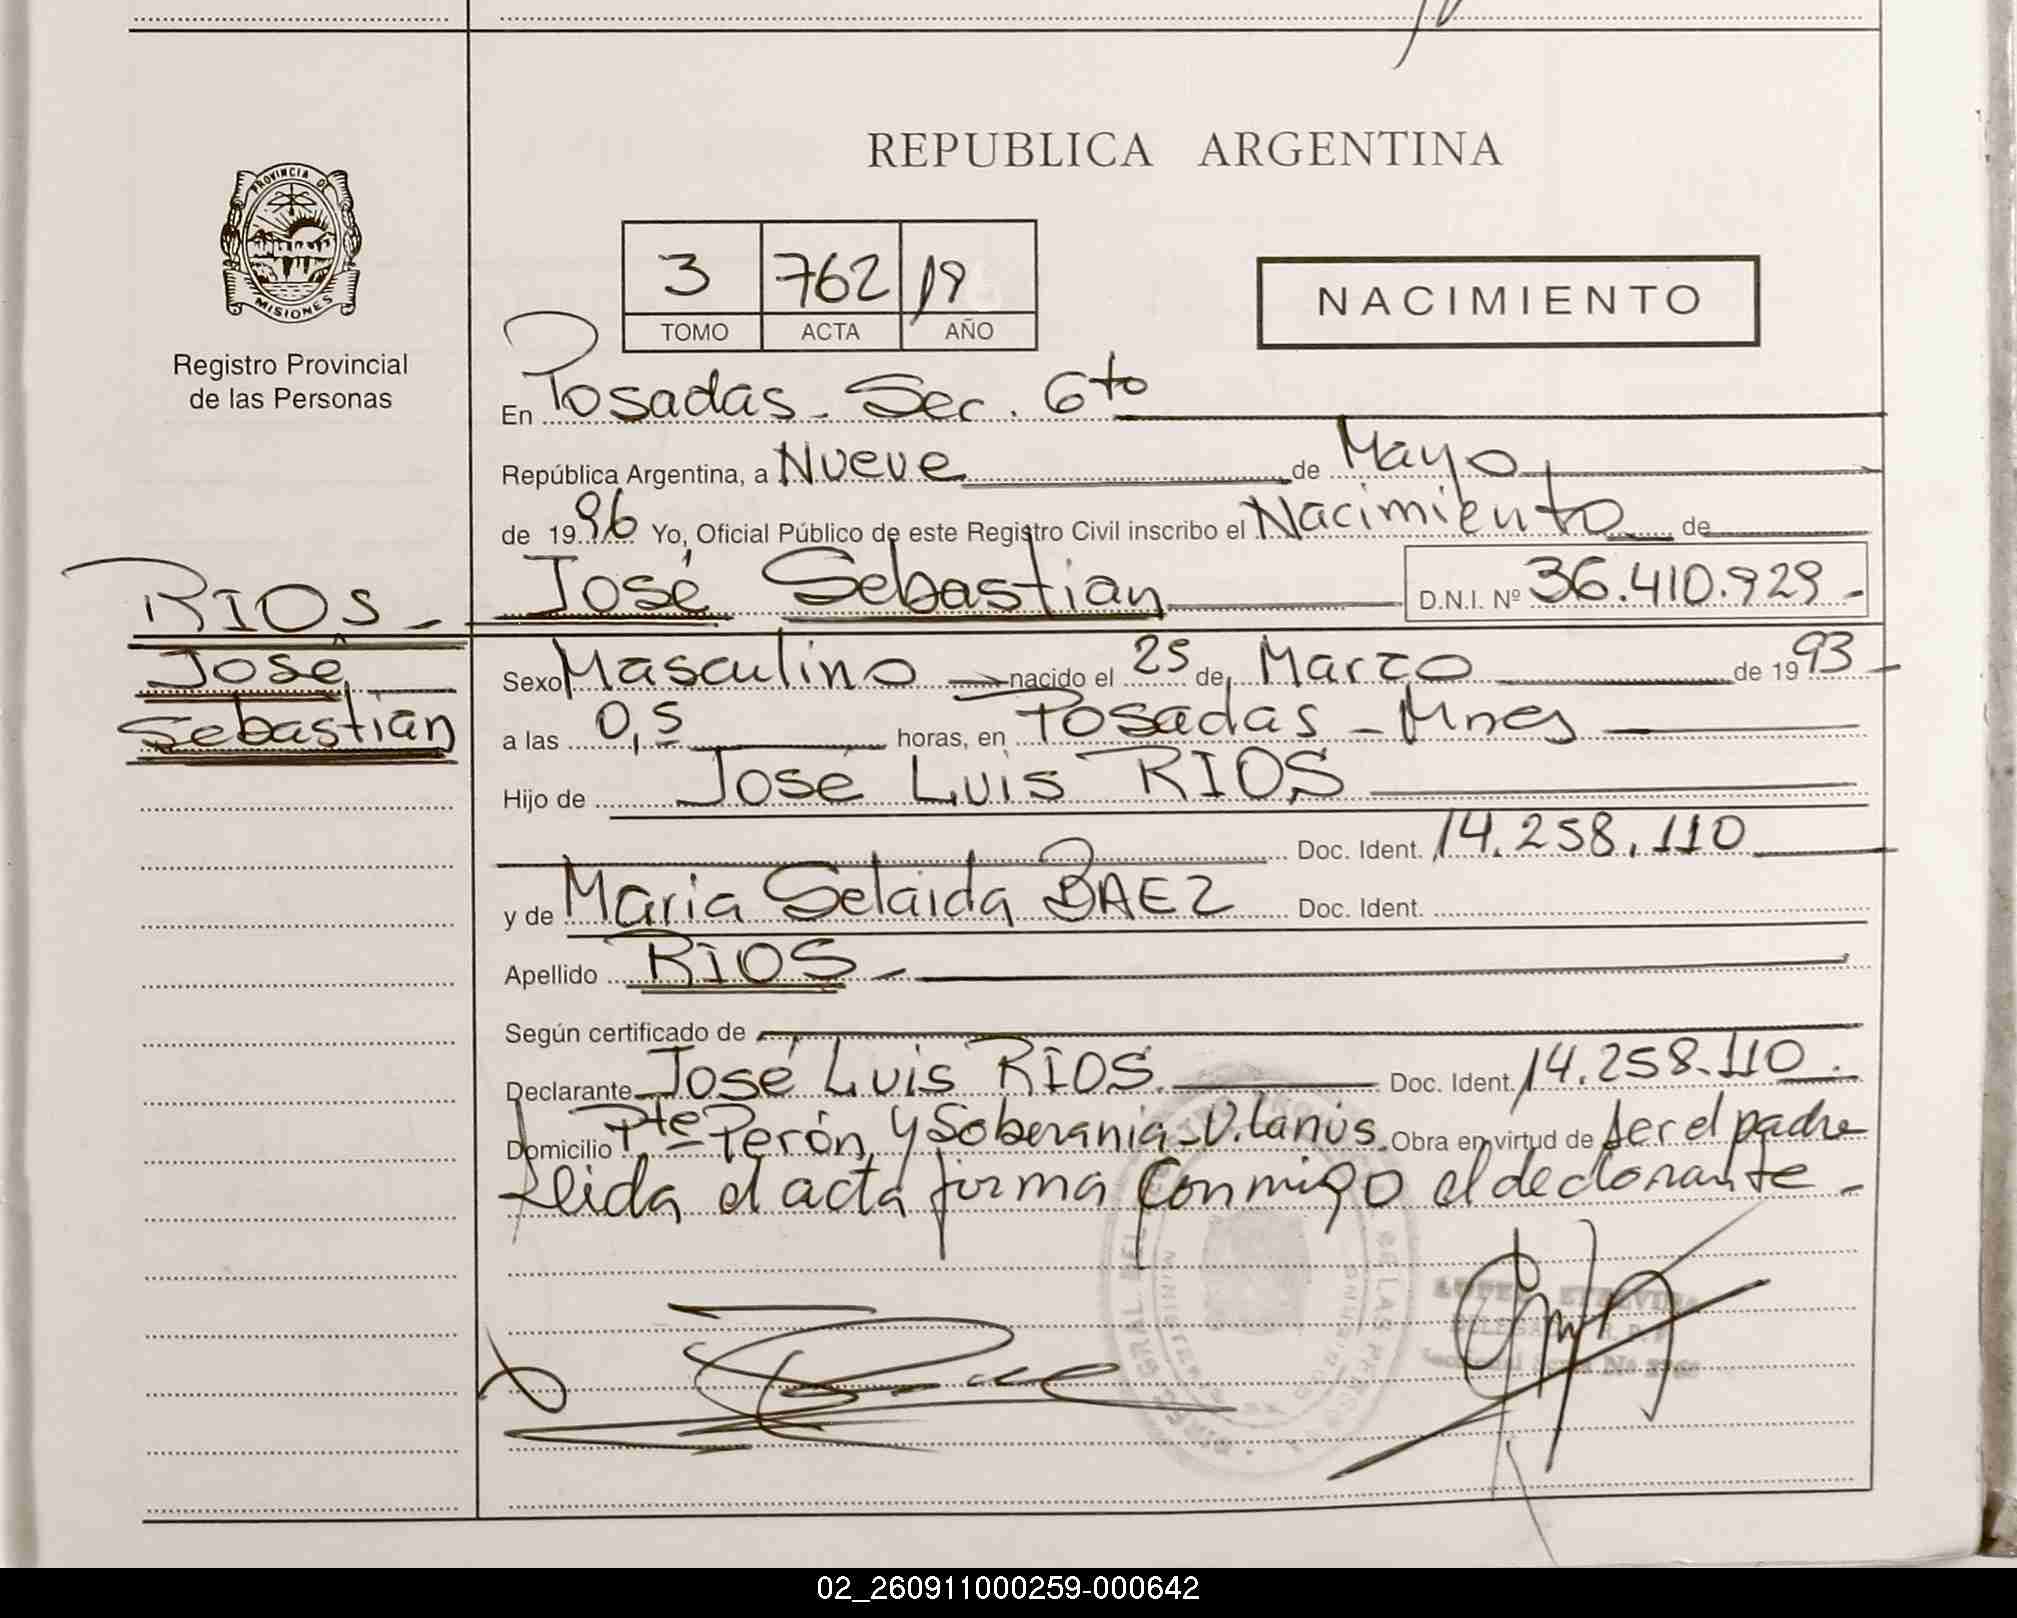 REPUBLICA ARGENTINA
PROVINCIA DE
MISIONES
Registro Provincial
de las Personas
3 762 19
TOMO ACTA AÑO
NACIMIENTO
En Posadas. Sec. 6to
República Argentina, a Nueve de Mayo
de 1996 Yo, Oficial Público de este Registro Civil inscribo el Nacimiento de
José Sebastian D.N.I. Nº 36.410.929-
RIOS-
José
Sebastian
Sexo Masculino nacido el 25 de Marzo de 1993
a las 0,5 horas, en Posadas - Mnes
Hijo de José Luis RIOS
Doc. Ident. 14.258.110
y de Maria Selaida BAEZ Doc. Ident.
Apellido RIOS-
Según certificado de
Declarante José Luis RIOS. Doc. Ident. 14.258.110.
Domicilio Pte Perón y Soberania-V.lanús. Obra en virtud de ser el padre
leida el acta firma conmigo el declarante-
02_260911000259-000642